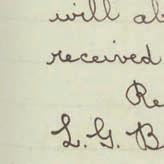 will ab
received
Re
L. G. B